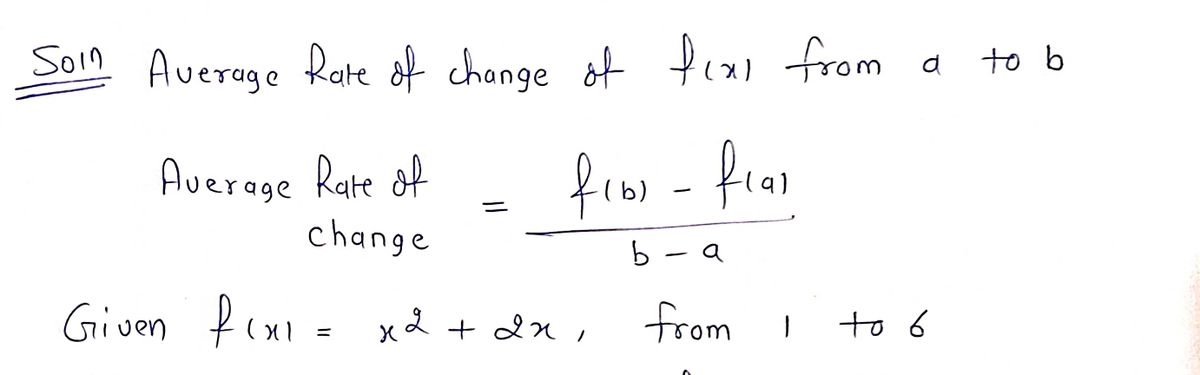 Soln Average Rate of change of f(x) from a to b
Average Rate of change = f(b) - f(a) / b - a
Given f(x) = x2 + 2x, from 1 to 6